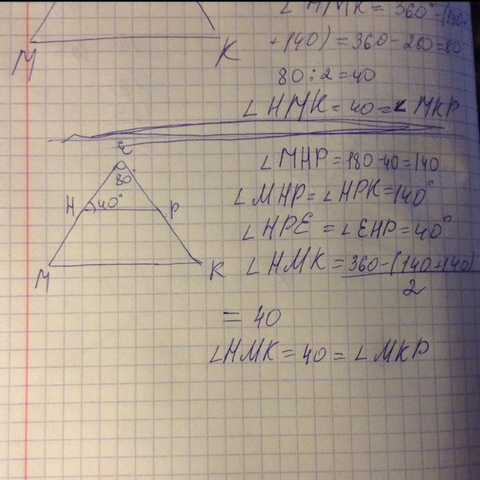 ∠HMK = 360° - (140+
+140) = 360 - 280 = 80
80 : 2 = 40
∠HMK = 40 = ∠MKP
M K
E
80°
H 40° P
M K
∠MHP = 180 - 40 = 140
∠MHP = ∠HPK = 140°
∠HPE = ∠EHP = 40°
∠HMK = 360 - (140 + 140)
2
= 40
∠HMK = 40 = ∠MKP